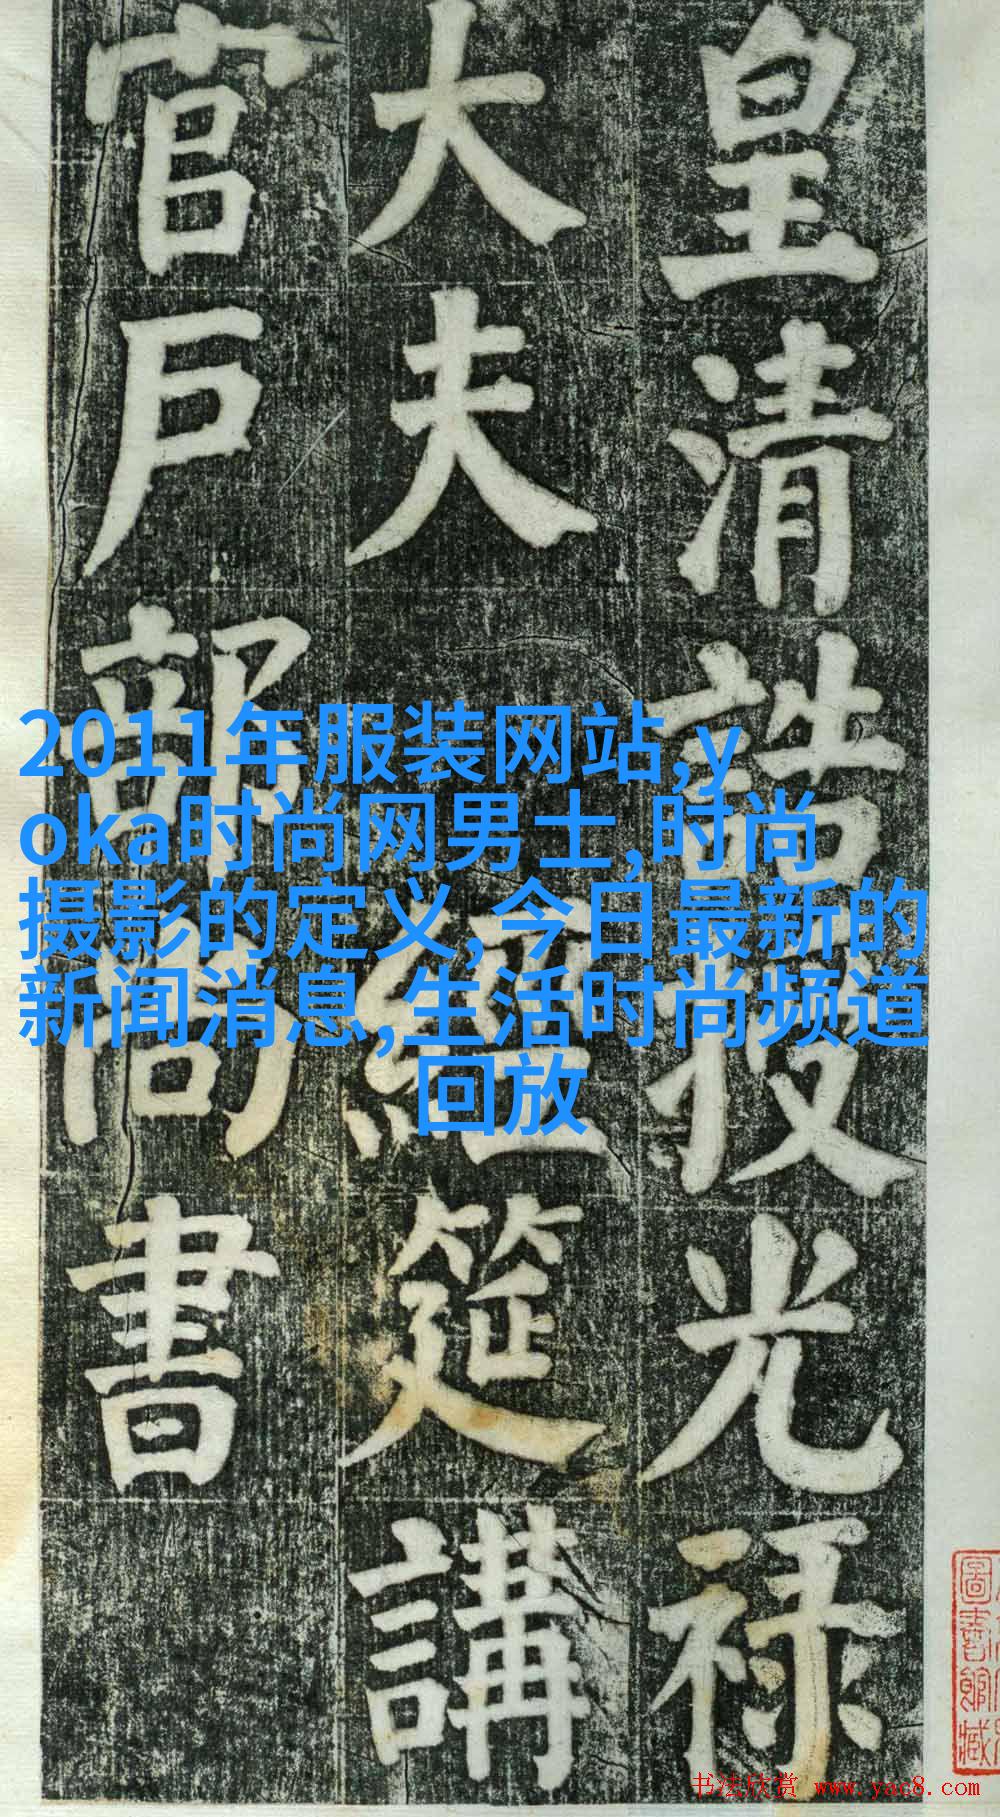 皇清誥授光禄
大夫經筵講
官戶部尚書
2011年服装网站,y
oka时尚网男士,时尚
摄影的定义,今日最新的
新闻消息,生活时尚频道
回放
圖書館藏
书法欣赏 www.yac8.com